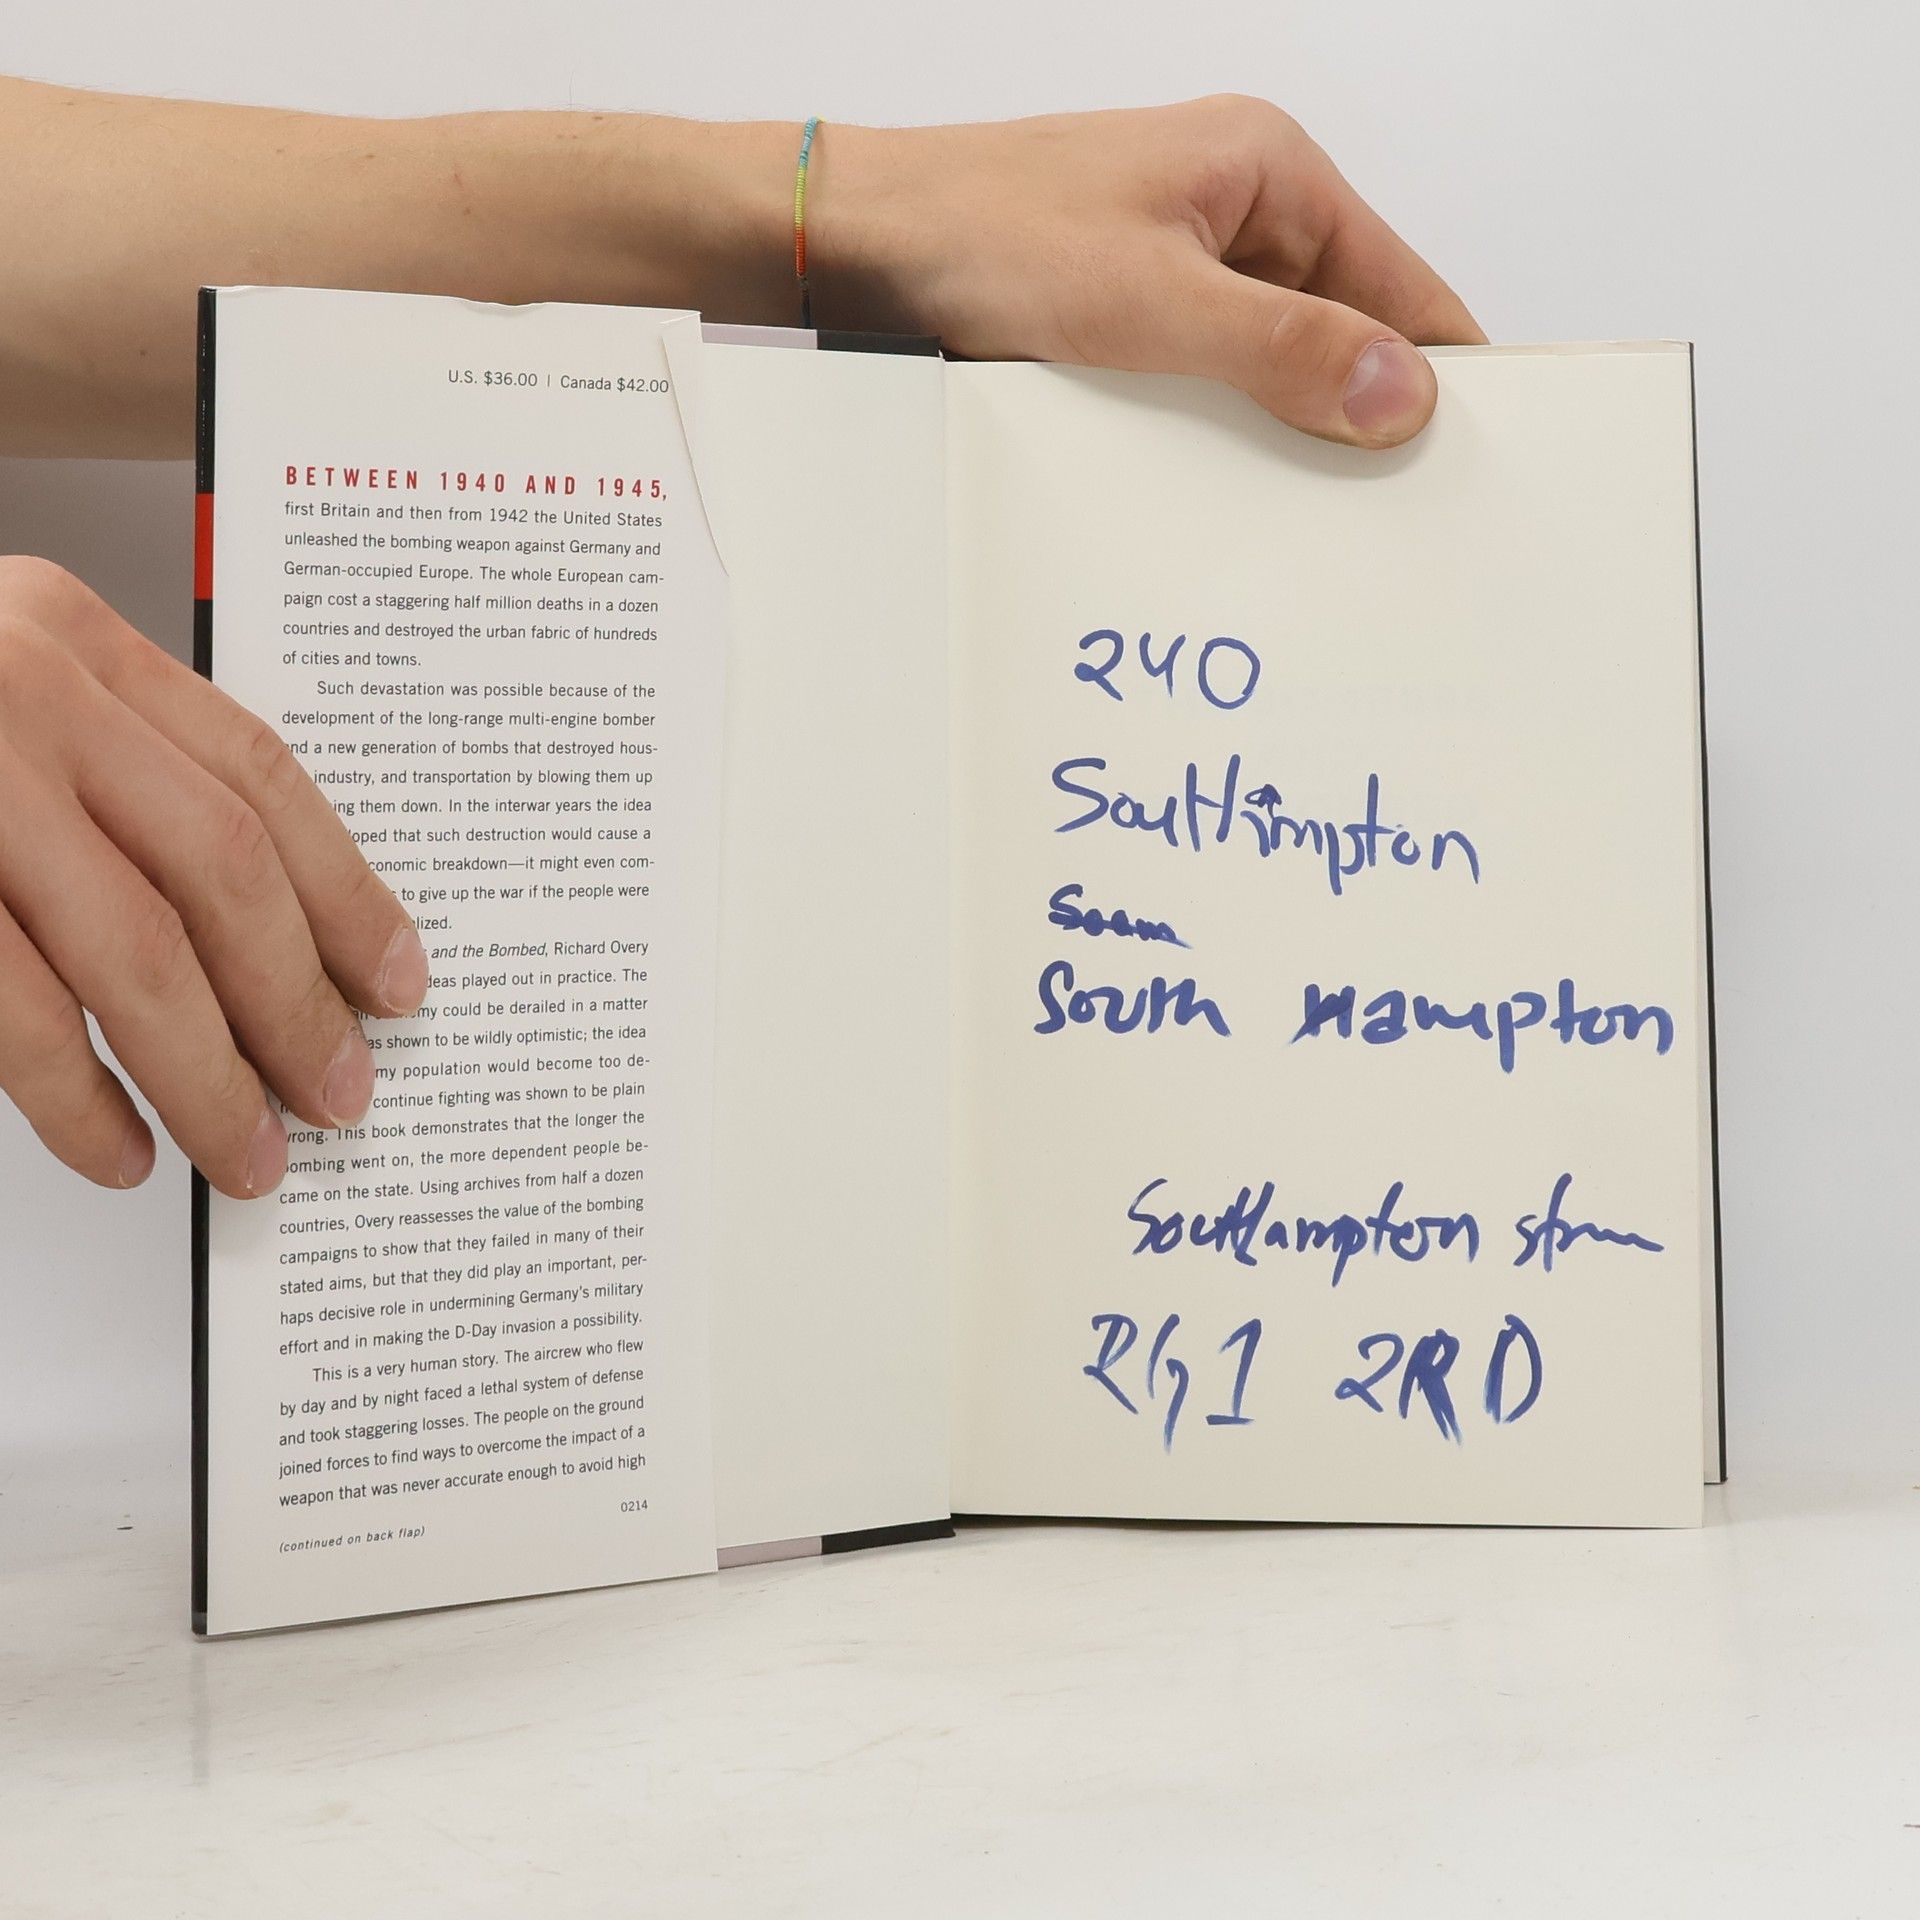 U.S. $36.00 | Canada $42.00
BETWEEN 1940 AND 1945,
first Britain and then from 1942 the United States
unleashed the bombing weapon against Germany and
German-occupied Europe. The whole European cam-
paign cost a staggering half million deaths in a dozen
countries and destroyed the urban fabric of hundreds
of cities and towns.
Such devastation was possible because of the
development of the long-range multi-engine bomber
and a new generation of bombs that destroyed hous-
industry, and transportation by blowing them up
ing them down. In the interwar years the idea
loped that such destruction would cause a
conomic breakdown—it might even com-
to give up the war if the people were
lized.
and the Bombed, Richard Overy
deas played out in practice. The
my could be derailed in a matter
as shown to be wildly optimistic; the idea
my population would become too de-
continue fighting was shown to be plain
wrong. This book demonstrates that the longer the
bombing went on, the more dependent people be-
came on the state. Using archives from half a dozen
countries, Overy reassesses the value of the bombing
campaigns to show that they failed in many of their
stated aims, but that they did play an important, per-
haps decisive role in undermining Germany's military
effort and in making the D-Day invasion a possibility.
This is a very human story. The aircrew who flew
by day and by night faced a lethal system of defense
and took staggering losses. The people on the ground
joined forces to find ways to overcome the impact of a
weapon that was never accurate enough to avoid high
0214
(continued on back flap)
240
Southampton
South Hampton
Southampton
RG1 2RD